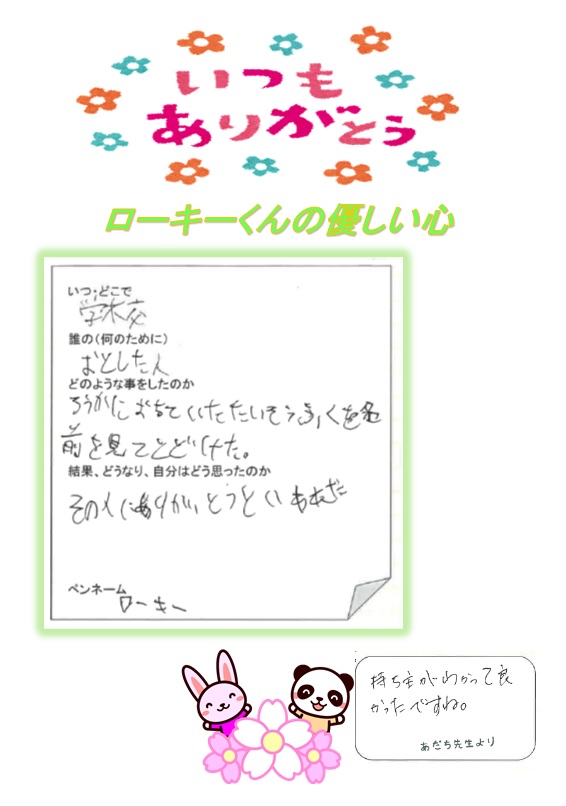 いつも
ありがとう
ローキーくんの優しい心
いつ・どこで
学校
誰の(何のために)
おとした人
どのような事をしたのか
ろうかにおちていたたいそうふくを名
前を見てとどけた。
結果、どうなり、自分はどう思ったのか
その人にありがとうといわれた
ペンネーム
ローキー
持ち主がわかって良
かったですね。
あだち先生より